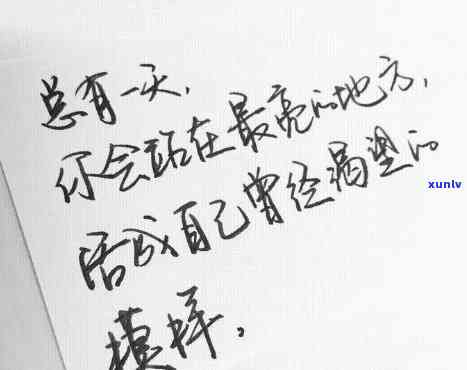 总有一天，
你会站在最亮的地方，
活成自己曾经渴望的
模样，
xunlv